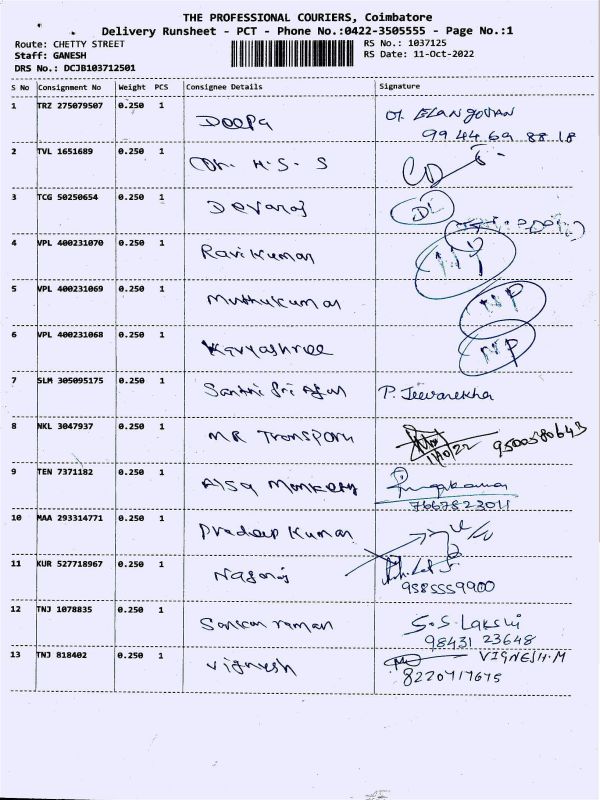 THE PROFESSIONAL COURIERS, Coimbatore
Delivery Runsheet - PCT - Phone No.:0422-3505555 - Page No.:1
Route: CHETTY STREET
RS No.: 1037125
Staff: GANESH
RS Date: 11-Oct-2022
DRS No.: DCJB103712501
S No Consignment No Weight PCS Consignee Details Signature
1 TRZ 275079507 0.250 1 Deepa ELANGOVAN
99 44 69 88 18
2 TVL 1651689 0.250 1 Dr. H.S.S
3 TCG 50250654 0.250 1 Devaraj
4 VPL 400231070 0.250 1 Ravi Kumar
5 VPL 400231069 0.250 1 Muthukumar NP
6 VPL 400231068 0.250 1 Kavyashree NP
7 SLM 305095175 0.250 1 P. Jeevarekha
8 NKL 3047937 0.250 1 MR Transport 9500580643
9 TEN 7371182 0.250 1
7667823011
10 MAA 293314771 0.250 1 Pradeep Kumar
11 KUR 527718967 0.250 1 Nagaraj
9585559900
12 TNJ 1078835 0.250 1 Sankar raman S.S. Lakshi
98431 23648
13 TNJ 818402 0.250 1 Vignesh VIGNESH.M
8220717675